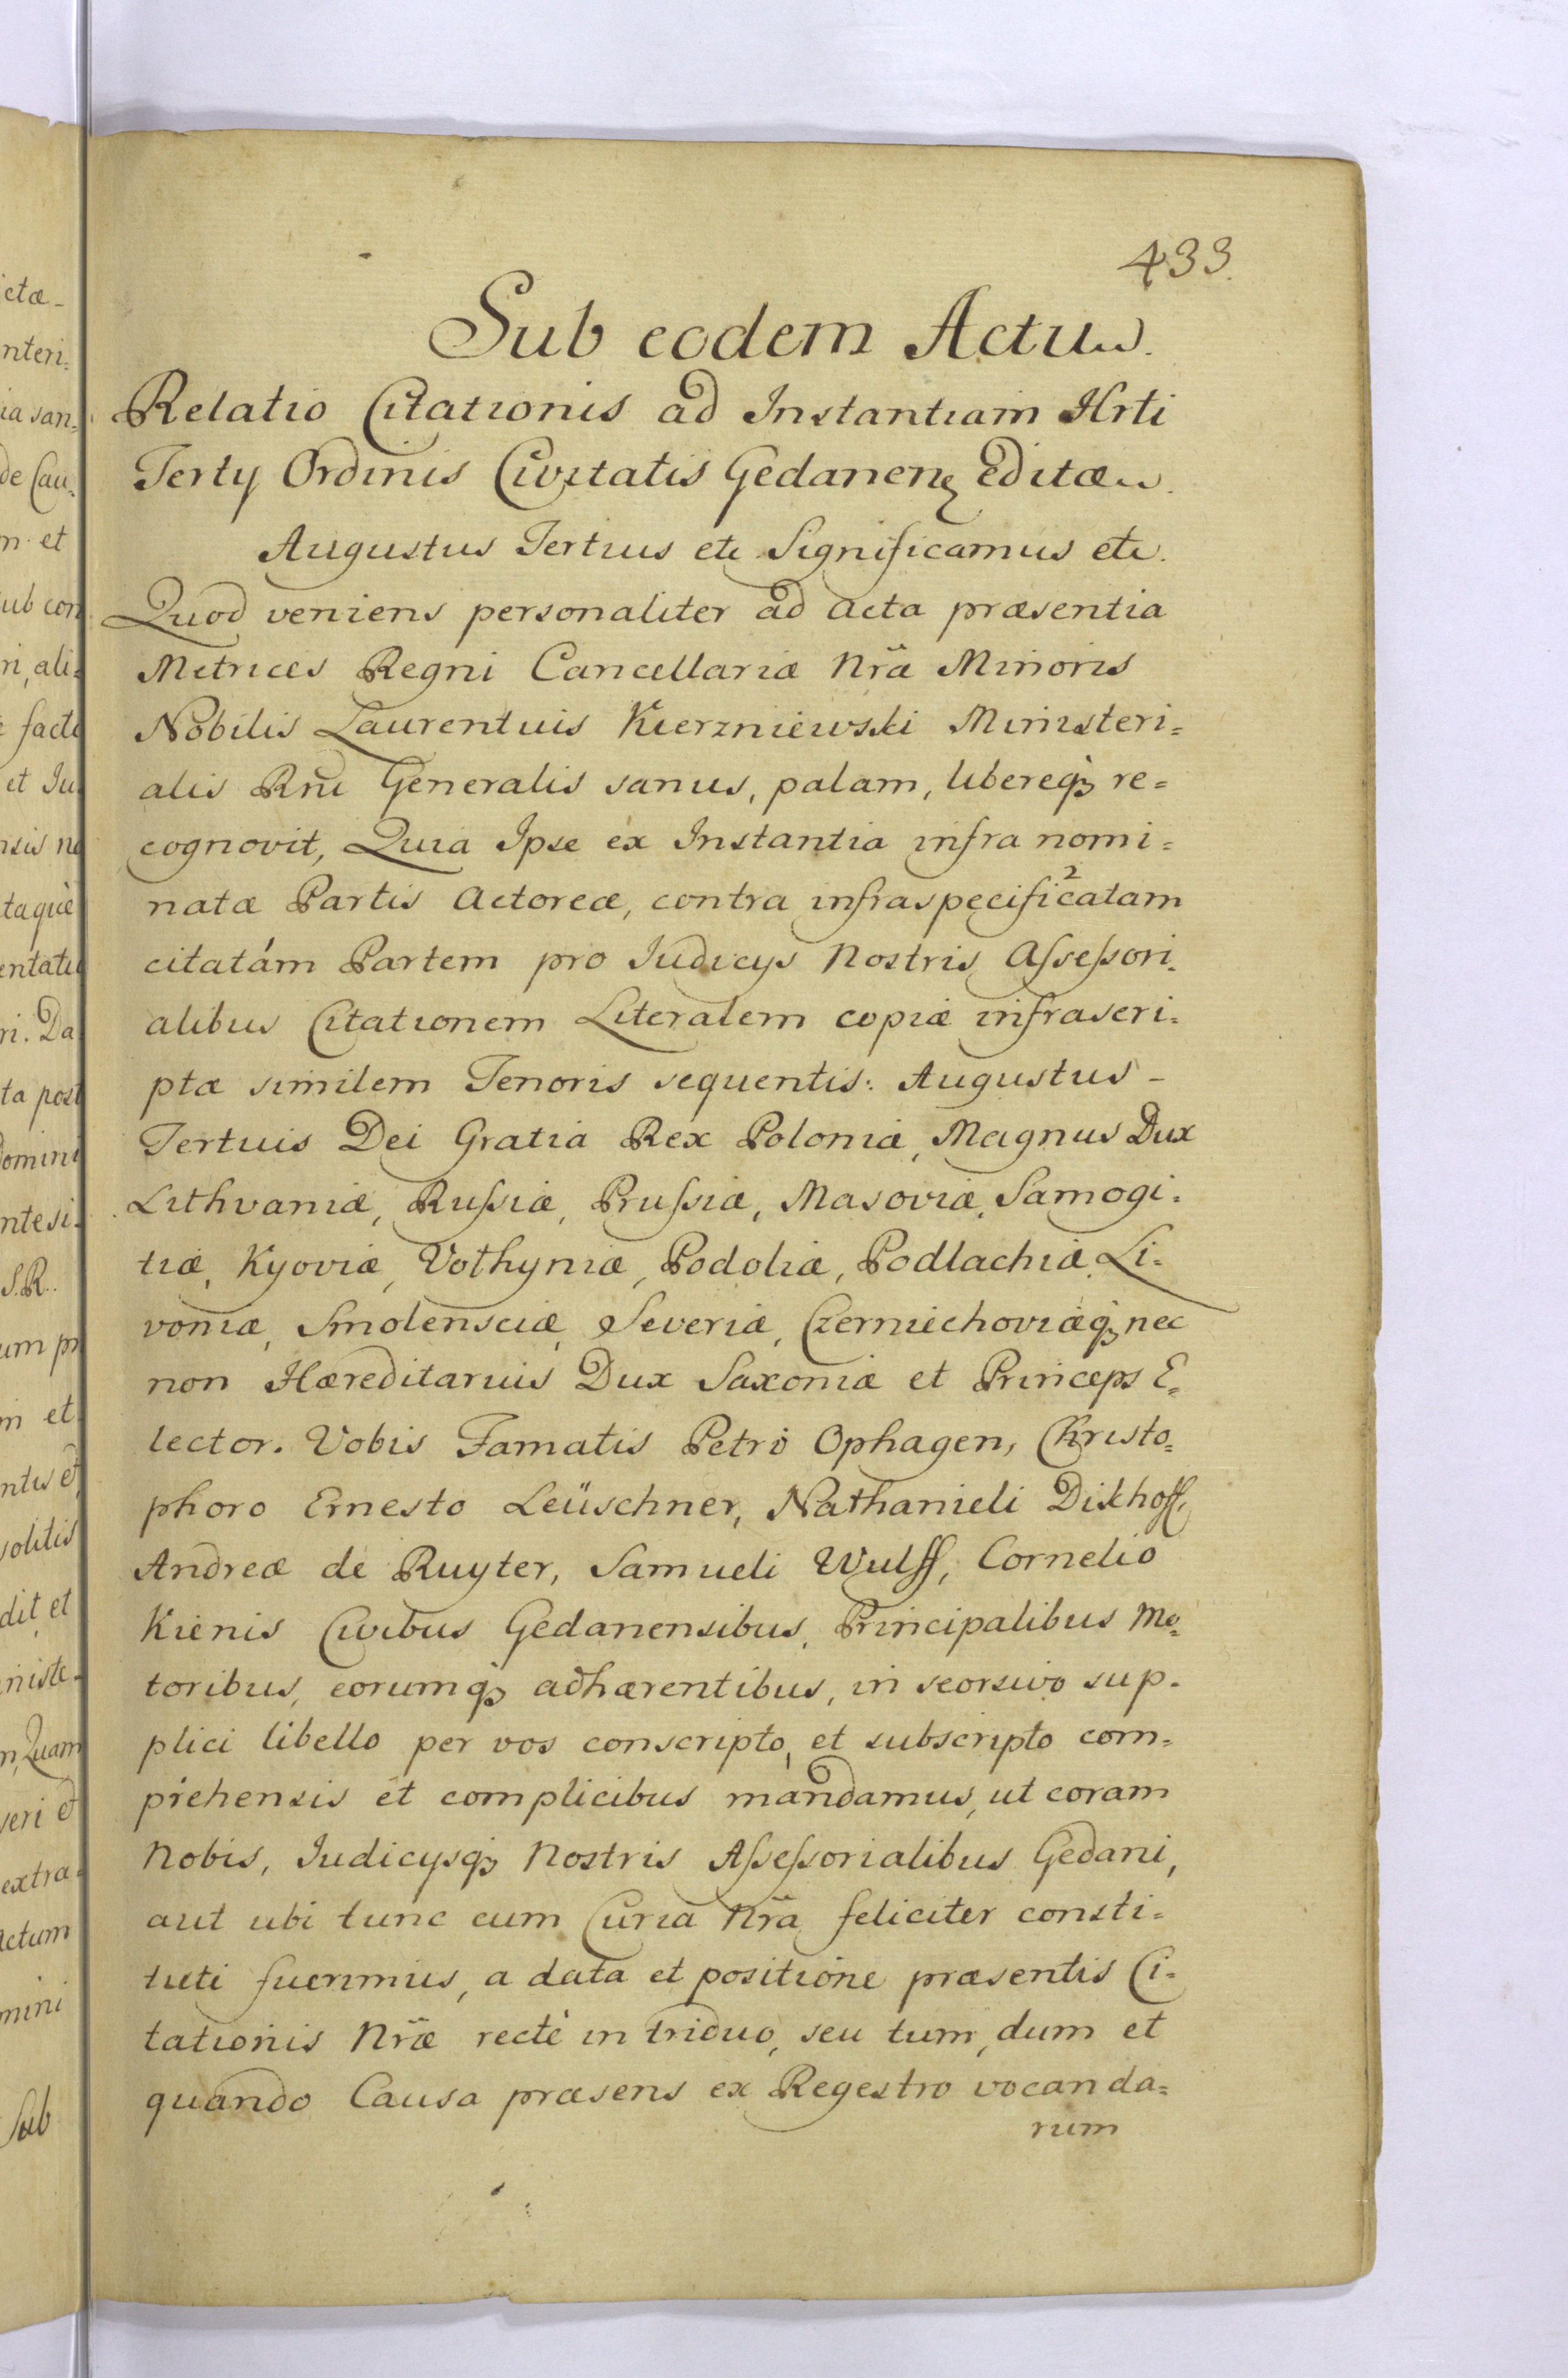 433.
Sub eodem Actu.
Relatio Citationis ad Instantiam Hrti
Tertÿ Ordinis Civitatis Gedanen: Editæ.
Augustus Tertius etc Significamus etc.
Quod veniens personaliter ad acta præsentia
Metrices Regni Cancellariæ Nrã Minoris
Nobilis Laurentius Kierzniewski Ministeri=
alis Rñi Generalis sanus, palam, libereq3 re=
cognovit, Quia Ipse ex Instantia infra nomi=
natæ Partis Actoreæ, contra infraspecificatam
citatám Partem pro Iudicÿs Nostris Aſseſsori=
alibus Citationem Literalem copiæ infrascri=
ptæ similem Tenoris sequentis: Augustus -
Tertius Dei Gratia Rex Poloniæ, Magnus Dux
Lithvaniæ, Ruſsiæ, Pruſsiæ, Masoviæ, Samogi=
tiæ, Kyoviæ, Volhyniæ, Podoliæ, Podlachiæ, Li=
voniæ, Smolensciæ, Severiæ, Czerniechoviæq3 nec
non Hæreditarius Dux Saxoniæ et Princeps E=
lector. Vobis Famatis Petro Ophagen, Christo=
phoro Ernesto Leüschner, Nathanieli Dikhoff,
Andreæ de Ruyter, Samueli Wulff, Cornelio
Kienis Civibus Gedanensibus, Principalibus Mo=
toribus, eorumq3 adhærentibus, in seorsivo sup=
plici libello per vos conscripto, et subscripto com=
prehensis et complicibus mandamus, ut coram
Nobis, Iudicÿsq3 Nostris Aſseſsorialibus Gedani,
aut ubi tunc cum Curia Nrã feliciter consti=
tuti fuerimus, a data et positione præsentis Ci=
tationis Nræ rectè in triduo, seu tum, dum et
quando Causa præsens ex Regestro vocanda=
rum